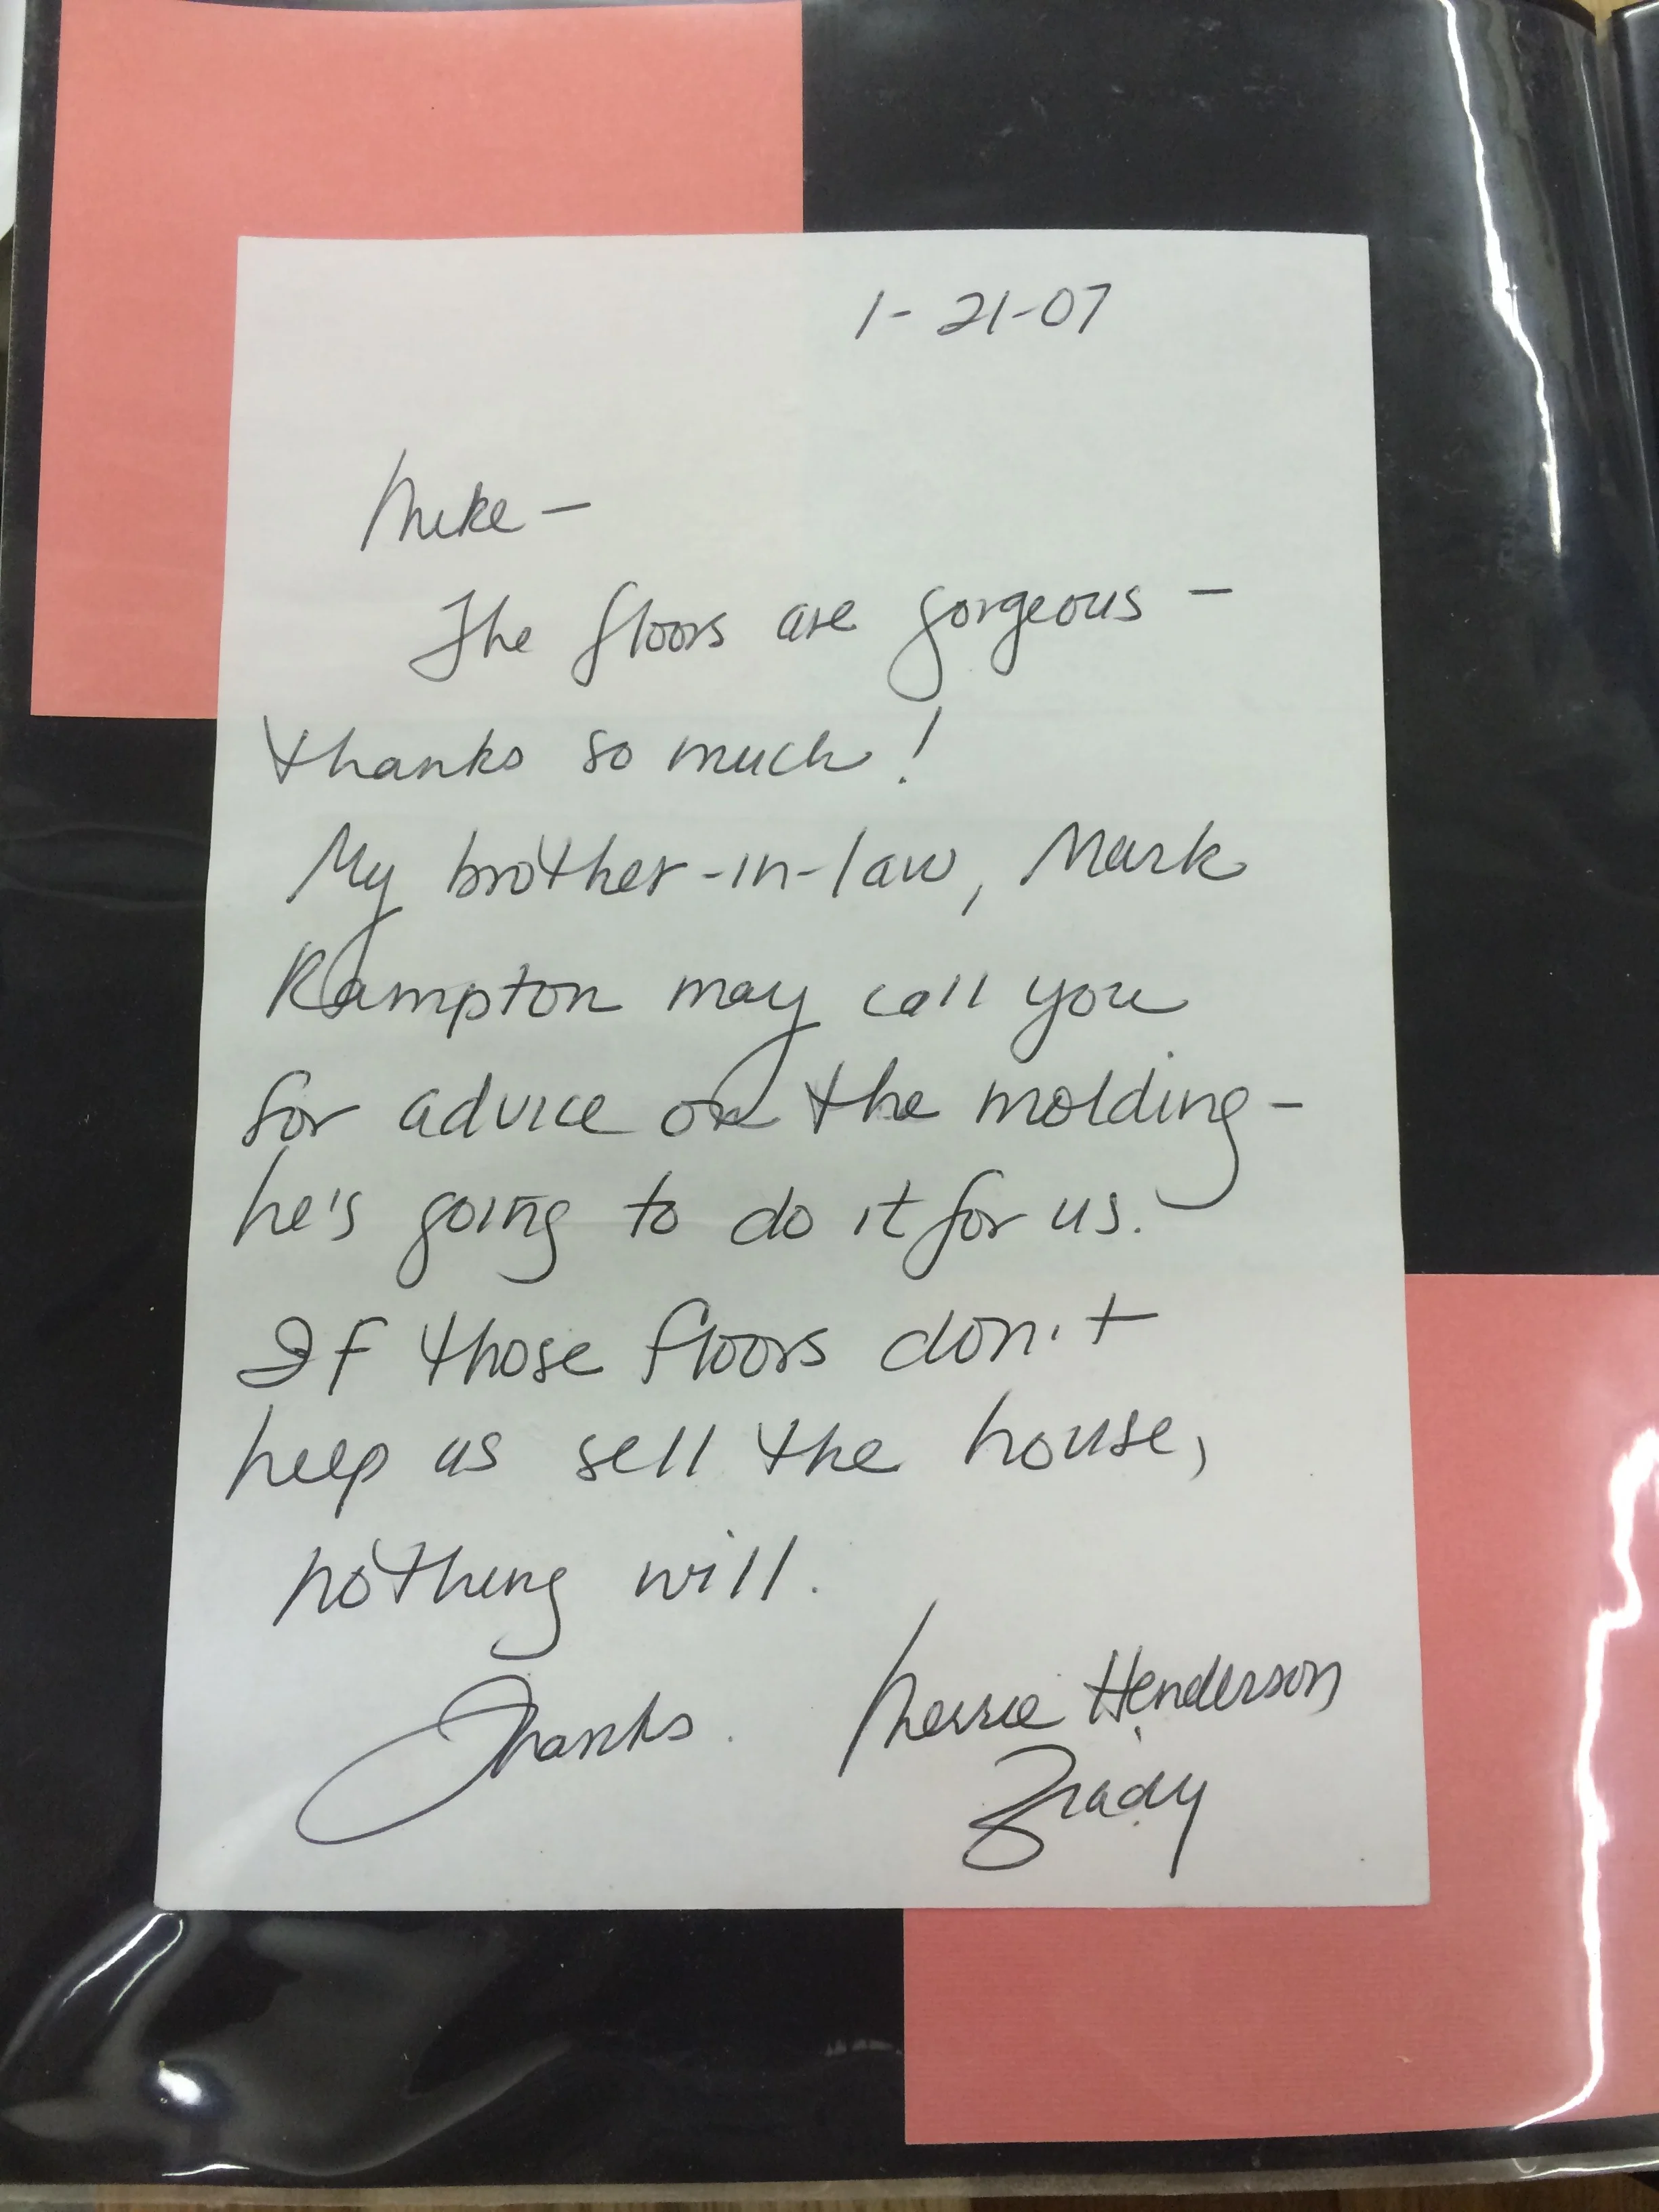 1-21-07
Mike —
The floors are gorgeous —
thanks so much!
My brother-in-law, Mark
Rampton may call you
for advice on the molding -
he's going to do it for us.
If those floors don't
help us sell the house,
nothing will.
Thanks. Merrie Henderson
Grady